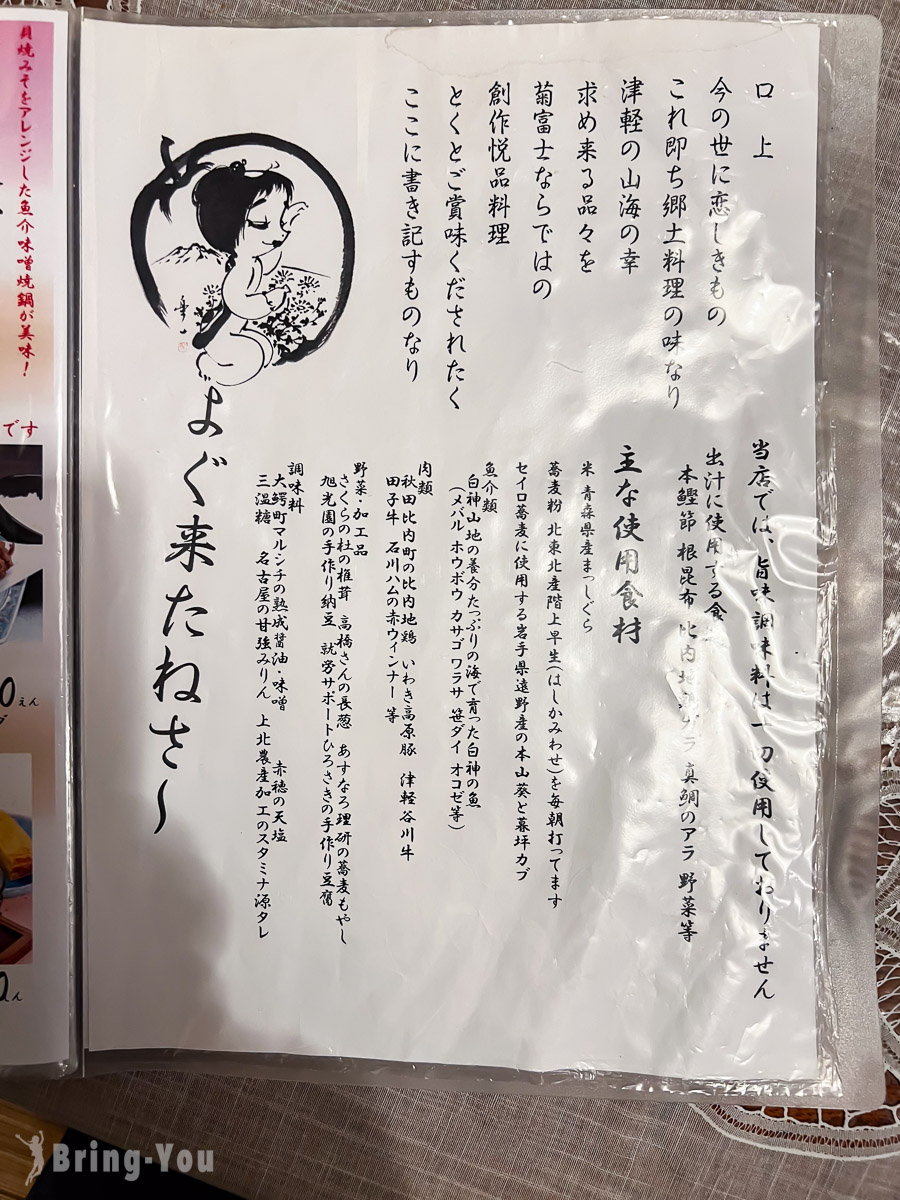 口上
今の世に恋しきもの
これ即ち郷土料理の味なり
津軽の山海の幸
求め来る品々を
菊富士ならではの
創作悦品料理
とくとご賞味くだされたく
ここに書き記すものなり
当店では、旨味調味料は一切使用しておりません
出汁に使用する食
本鰹節 根昆布 比内地鶏ガラ 真鯛のアラ 野菜等
主な使用食材
米 青森県産まっしぐら
蕎麦粉 北東北産階上早生(はしかみわせ)を毎朝打ってます
セイロ蕎麦に使用する岩手県遠野産の本山葵と暮坪カブ
魚介類
白神山地の養分たっぷりの海で育った白神の魚
(メバル ホウボウ カサゴ ワラサ 笹ダイ オコゼ等)
肉類
秋田比内町の比内地鶏 いわき高原豚 津軽谷川牛
田子牛 石川ハムの赤ウィンナー 等
野菜・加工品
さくらの杜の椎茸 高橋さんの長葱 あすなろ理研の蕎麦もやし
旭光園の手作り納豆 就労サポートひろさきの手作り豆腐
調味料
大鰐町マルシチの熟成醤油・味噌 赤穂の天塩
三温糖 名古屋の甘強みりん 上北農産加工のスタミナ源タレ
よぐ来たねさ〜
貝焼みそをアレンジした魚介味噌焼鍋が美味!
です
0えん
Bring-You